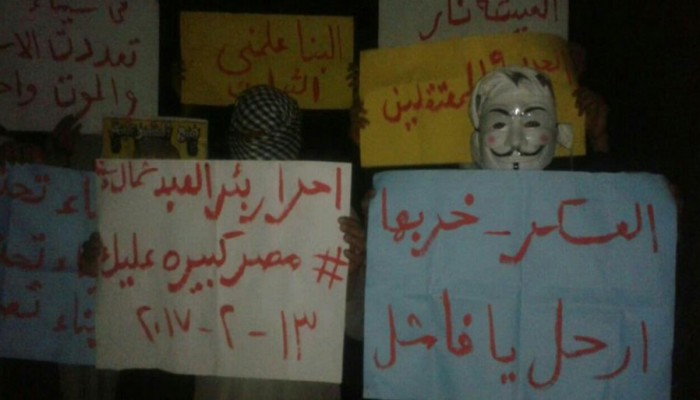 في سيناء
تعددت الاس
والموت واح
البنا علمني
الثبات
العيشة نار
المعتقلين
احرار بئر العبد شمال س
# مصر كبيره عليك
١٣-٢-٢٠١٧
العسكر_خربها
ارحل يا فاشل
ناء تحت